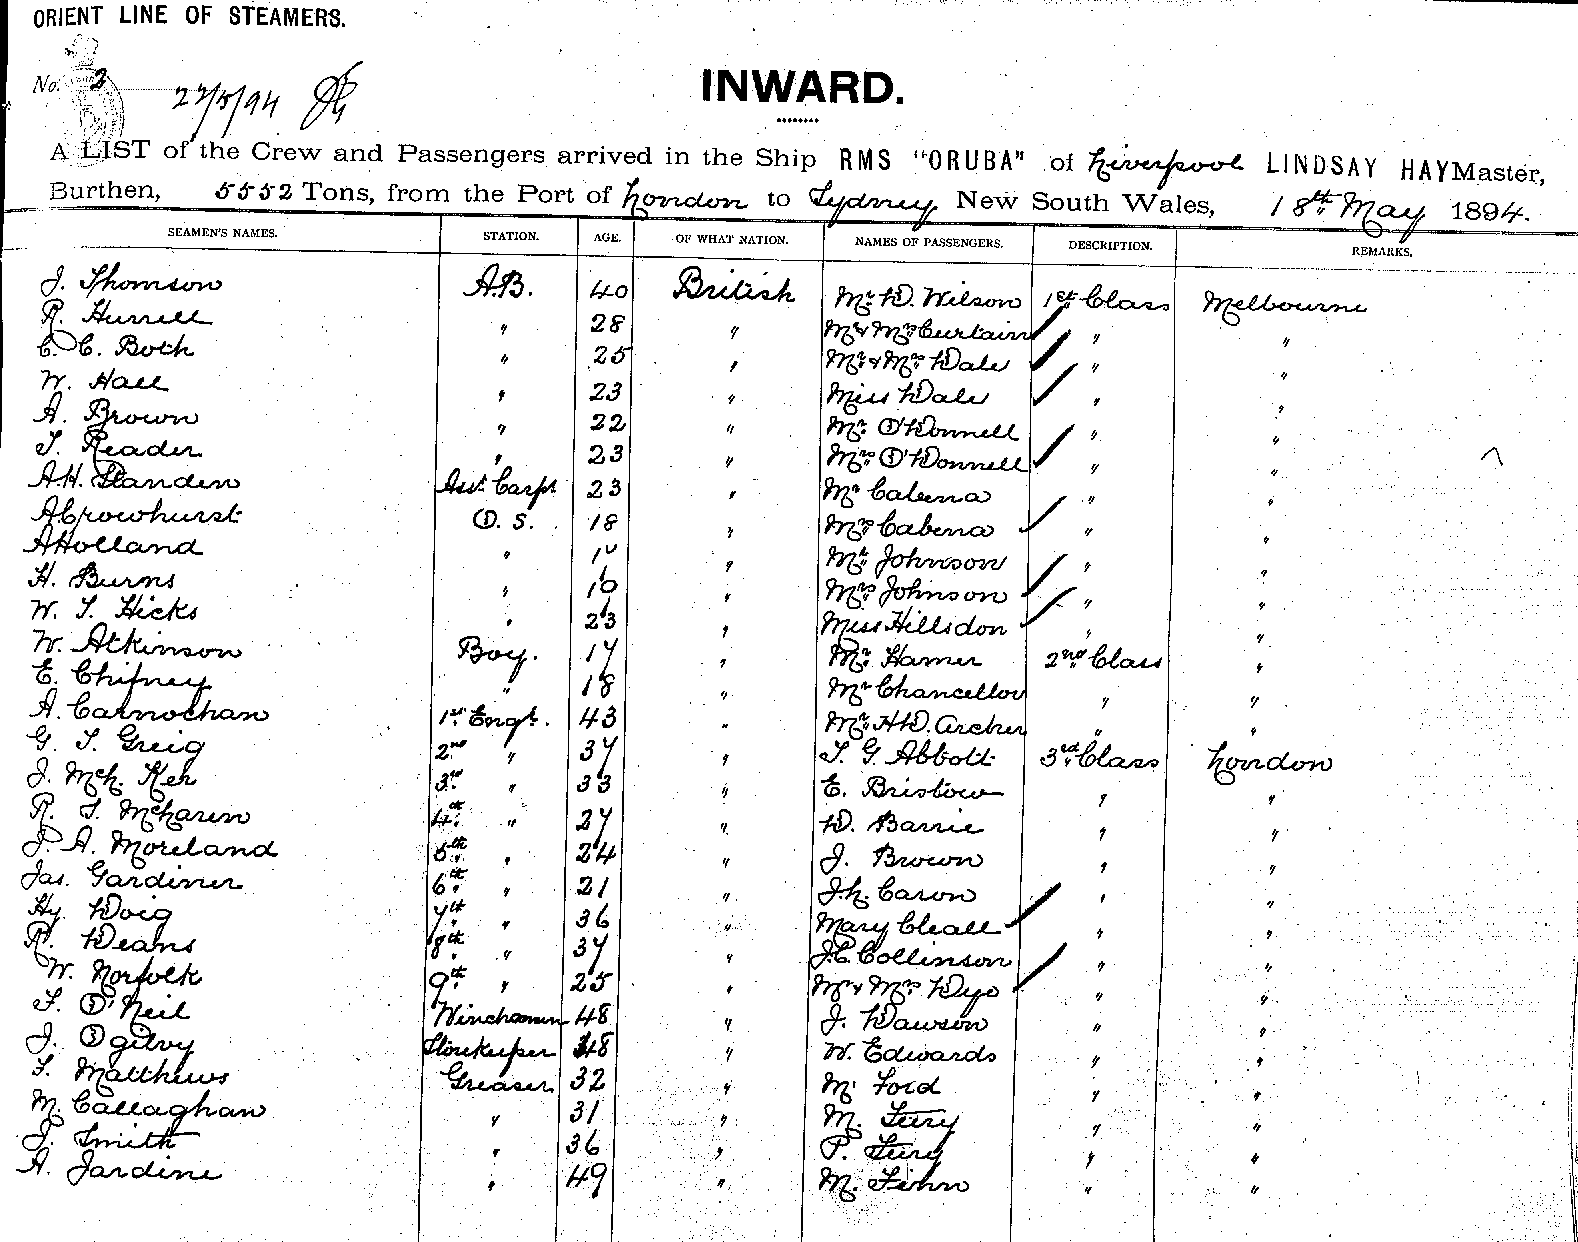 ORIENT LINE OF STEAMERS.
No. 2
22/5/94
INWARD.
A LIST of the Crew and Passengers arrived in the Ship RMS "ORUBA" of Liverpool LINDSAY HAY Master,
Burthen, 5552 Tons, from the Port of London to Sydney, New South Wales, 18th May 1894.
SEAMEN'S NAMES. STATION. AGE. OF WHAT NATION. NAMES OF PASSENGERS. DESCRIPTION. REMARKS.
J. Thomson A.B. 40 British Mr. D. Wilson 1st Class Melbourne
R. Hurrell " 28 " Mr & Mrs Curtain " "
C. C. Both " 25 " Mr & Mrs Dale " "
W. Hall " 23 " Miss Dale " "
A. Brown " 22 " Mr. O'Donnell " "
T. Reader " 23 " Mrs O'Donnell " "
A.H. Standen Asst. Carpt 23 " Mr Cabena " "
A Crowhurst O. S. 18 " Mrs Cabena " "
A Holland " " Mr Johnson " "
H. Burns " " Mrs Johnson " "
W. T. Hicks " 23 " Miss Hillsdon " "
W. Atkinson Boy. 17 " Mr. Hamer 2nd Class "
E. Chifney " 18 " Mr Chancellor " "
A. Carnochan 1st Engr. 43 " Mr. H.D. Archer " "
G. T. Greig 2nd " 37 " T. G. Abbott 3rd Class London
J. McK. Keh 3rd " 33 " E. Bristow " "
R. T. McLaren 4th " 27 " D. Barrie " "
J. A. Moreland 5th " 24 " J. Brown " "
Jas. Gardiner 6th " 21 " J.L. Caron " "
Hy. Doig 7th " 36 " Mary Cleall " "
R. Deans 8th " 37 " J.C. Collinson " "
W. Norfolk 9th " 25 " Mr & Mrs Dye " "
T. O'Neil Winchman 48 " J. Dawson " "
J. Ogilvy Storekeeper 48 " W. Edwards " "
T. Matthews Greaser 32 " M. Ford " "
M. Callaghan " 31 " M. Fury " "
J. Smith " 36 " P. Fury " "
A. Jardine " 49 " M. Finn " "